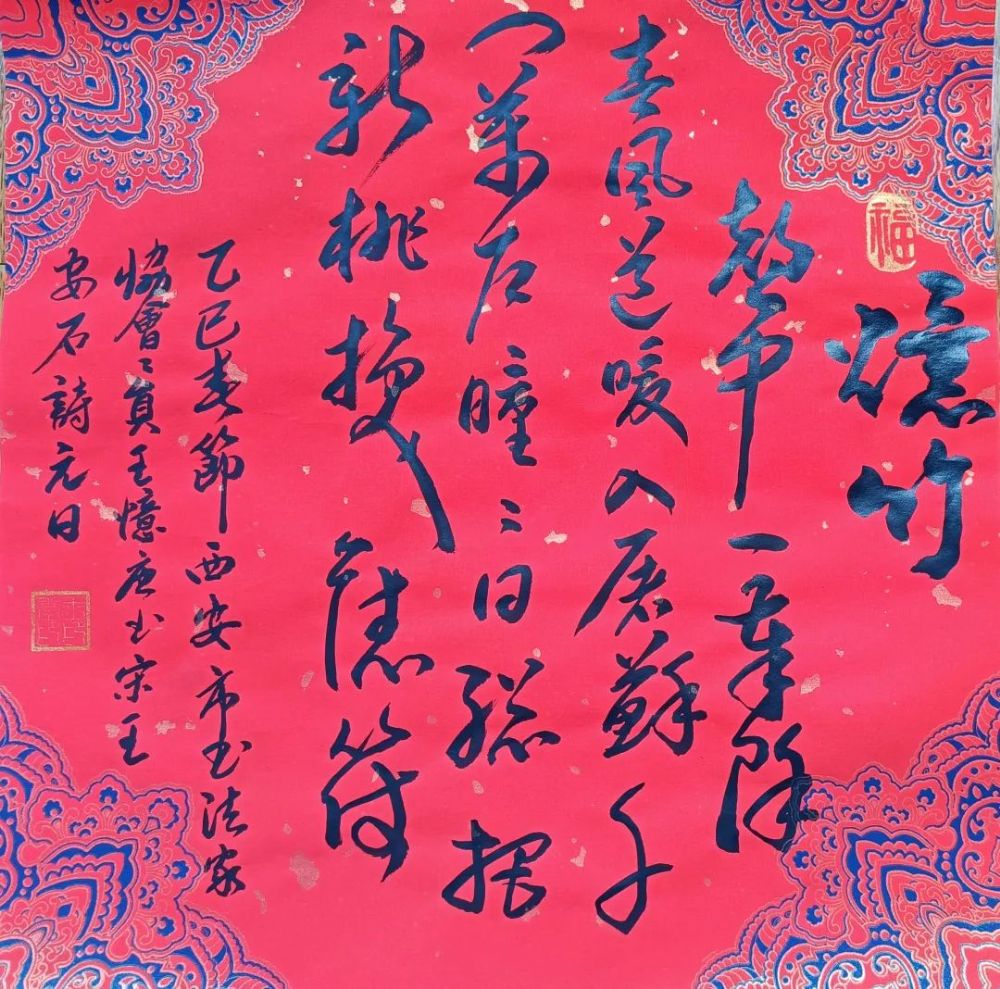 福
爆竹
聲中一歲除
春風送暖入屠蘇千
門萬户曈々日總把
新桃換舊符
乙巳春節西安市书法家
協會々員王憶唐书宋王
安石詩元日